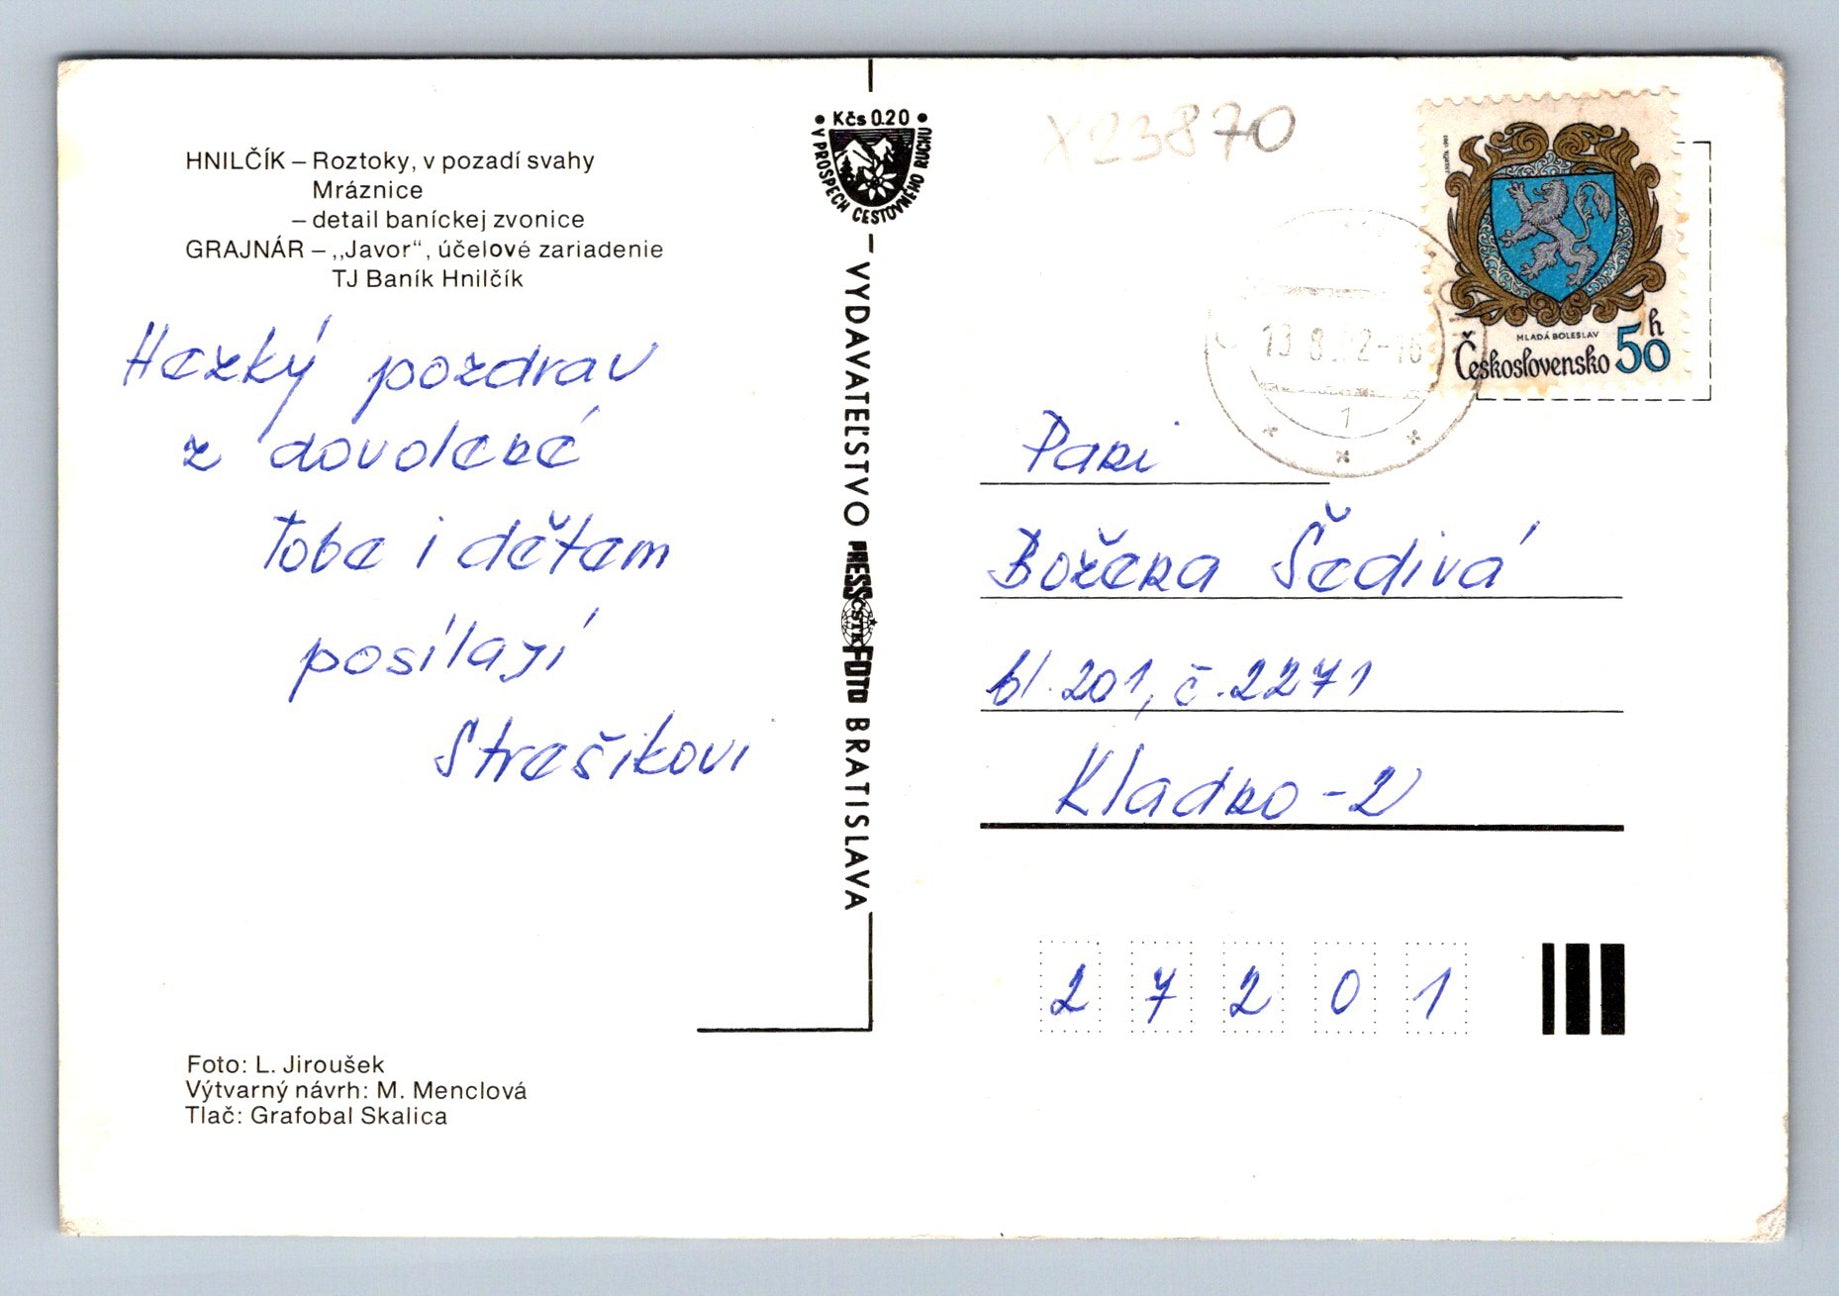 HNILČÍK – Roztoky, v pozadí svahy
Mráznice
– detail baníckej zvonice
GRAJNÁR – „Javor“, účelové zariadenie
TJ Baník Hnilčík
Hezký pozdrav
z dovolené
Tobe i dětem
posílají
Strešikovi
Foto: L. Jiroušek
Výtvarný návrh: M. Menclová
Tlač: Grafobal Skalica
• Kčs 0.20 •
V PROSPECH CESTOVNÉHO RUCHU
VYDAVATEĽSTVO PRESSFOTO BRATISLAVA
ČSTK
X23870
MLADÁ BOLESLAV
Československo 50 h
1
Paní
Božena Šedivá
bl. 201, č. 2271
Kladno - 2
27201